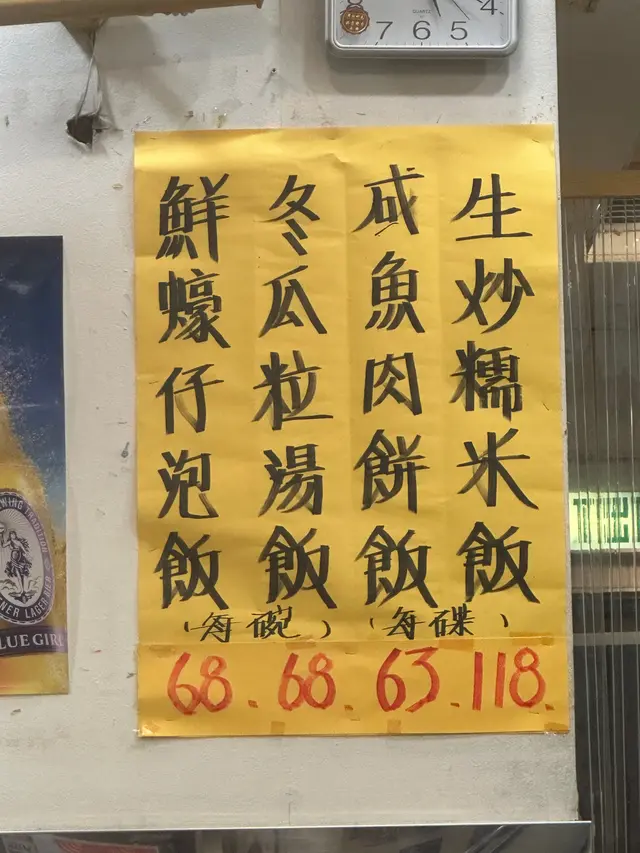 生炒糯米飯
咸魚肉餅飯
冬瓜粒湯飯
鮮蠔仔泡飯
(每碗) (每碟)
68. 68. 63. 118.
8 7 6 5 4
QUARTZ
LAGER BEER
BLUE GIRL